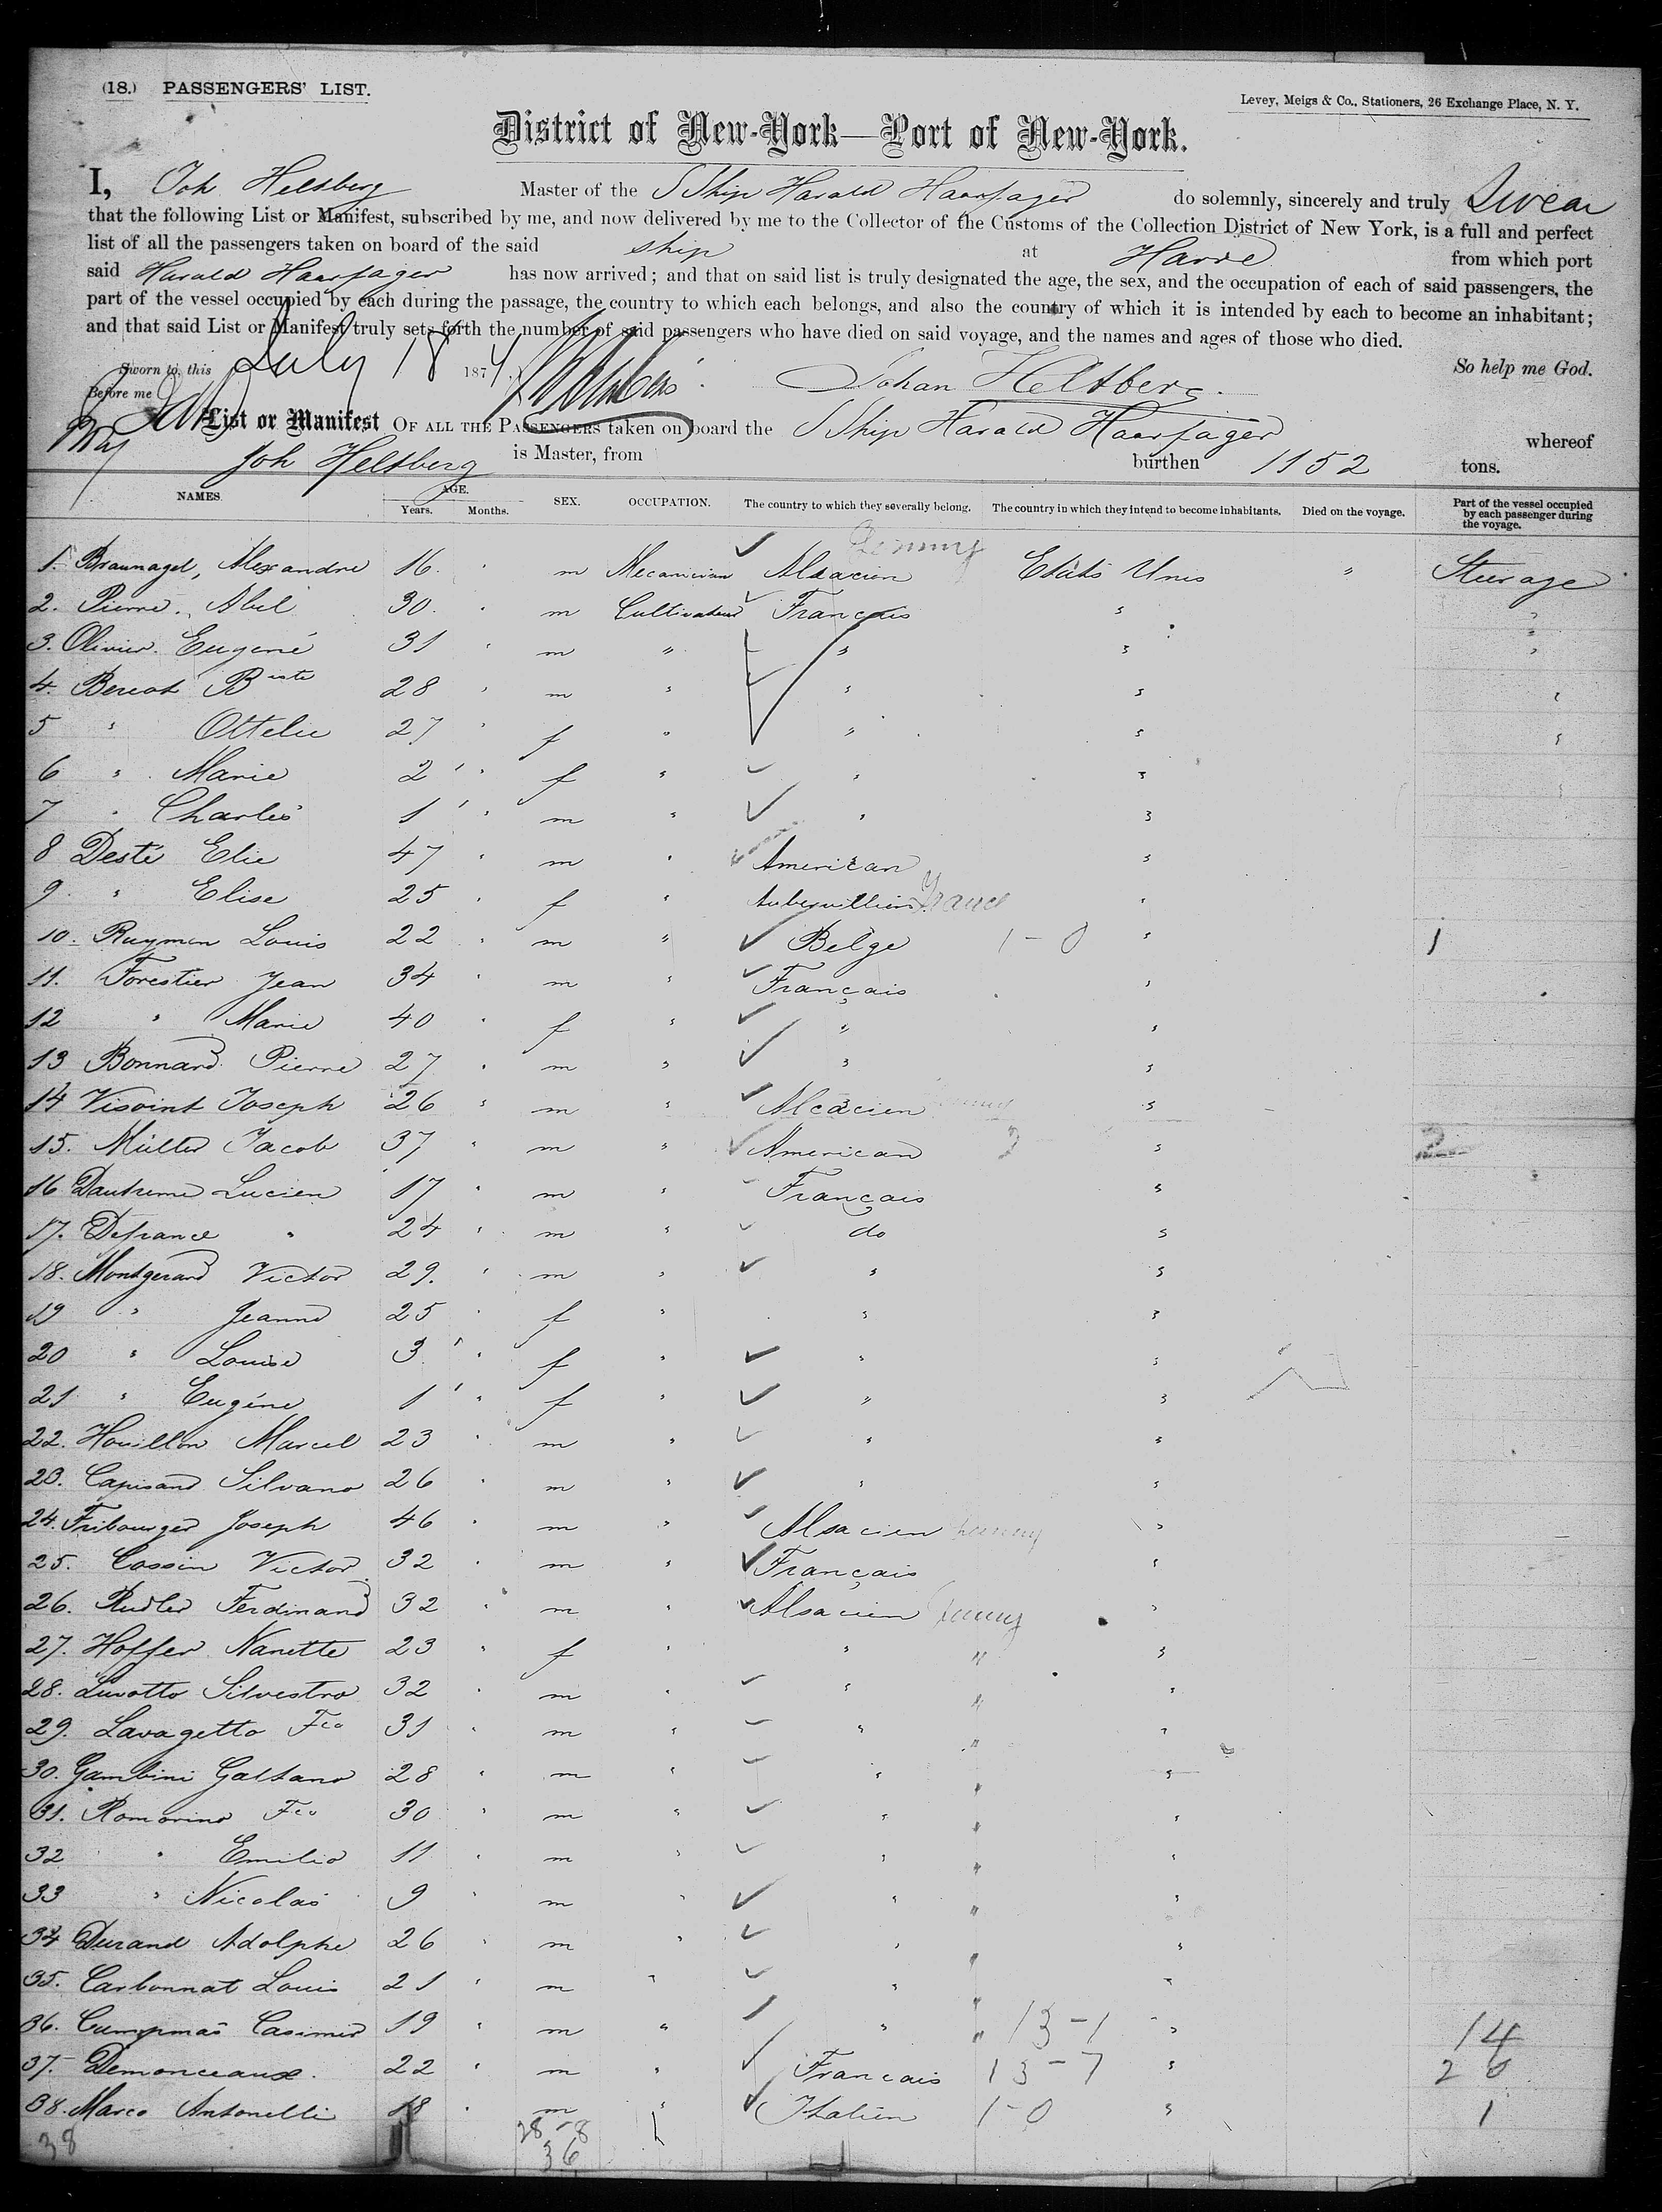 (18.) PASSENGERS' LIST.
Levey, Meigs & Co., Stationers, 26 Exchange Place, N. Y.
District of New-York—Port of New-York.
I, Joh. Heltberg Master of the S Ship Harald Haarfager do solemnly, sincerely and truly Swear
that the following List or Manifest, subscribed by me, and now delivered by me to the Collector of the Customs of the Collection District of New York, is a full and perfect
list of all the passengers taken on board of the said ship at Havre from which port
said Harald Haarfager has now arrived; and that on said list is truly designated the age, the sex, and the occupation of each of said passengers, the
part of the vessel occupied by each during the passage, the country to which each belongs, and also the country of which it is intended by each to become an inhabitant;
and that said List or Manifest truly sets forth the number of said passengers who have died on said voyage, and the names and ages of those who died.
Sworn to this July 18 1874 Johan Heltberg. So help me God.
Before me
List or Manifest OF ALL THE PASSENGERS taken on board the S Ship Harald Haarfager whereof
Joh Heltberg is Master, from burthen 1152 tons.
NAMES. AGE. Years. Months. SEX. OCCUPATION. The country to which they severally belong. The country in which they intend to become inhabitants. Died on the voyage. Part of the vessel occupied by each passenger during the voyage.
1. Braunagel, Alexandre 16 " m Mecanicien Alsacien Etats Unis " Steerage
2. Pierre. Abel 30 " m Cultivateur Français " "
3. Olivier. Eugené 31 " m " " " "
4. Bereot Biste 28 " m " " " "
5 " Ottelie 27 " f " " " "
6 " Marie 2 " f " " " "
7 " Charles 1 " m " " "
8 Desté Elie 47 " m " American "
9 " Elise 25 " f " Aubervilliers France "
10. Ruymen Louis 22 " m " Belge 1-0 " 1
11. Forestier Jean 34 " m " Français "
12 " Marie 40 " f " " "
13 Bonnard Pierre 27 " m " " "
14 Visoint Joseph 26 " m " Alsacien "
15. Müller Jacob 37 " m " American 2 " 2
16 Dautreme Lucien 17 " m " Français "
17. Defrance " 24 " m " do "
18. Montgerard Victor 29. " m " " "
19 " Jeanne 25 " f " " "
20 " Louise 3 " f " " "
21 " Eugéne 1 " f " " "
22. Houillon Marcel 23 " m " " "
23. Capisano Silvano 26 " m " " "
24. Fribourger Joseph 46 " m " Alsacien "
25. Cossin Victor 32 " m " Français "
26. Rudler Ferdinand 32 " m " Alsacien "
27. Hoffer Nanette 23 " f " " " "
28. Luvotto Silvestro 32 " m " " " "
29. Lavagetto Fco 31 " m " " " "
30. Gambini Galtano 28 " m " " " "
31. Romorino Fco 30 " m " " " "
32 " Emilio 11 " m " " " "
33 " Nicolas 9 " m " " " "
34 Durand Adolphe 26 " m " " " "
35. Carbonnat Louis 21 " m " " " "
36. Cumpmas Casimir 19 " m " " " 13-1 " 14
37. Demonceaux. 22 " m " Francais 13-7 " 20
38. Marco Antonelli 18 " m " Italien 1-0 " 1
38 28-8
36